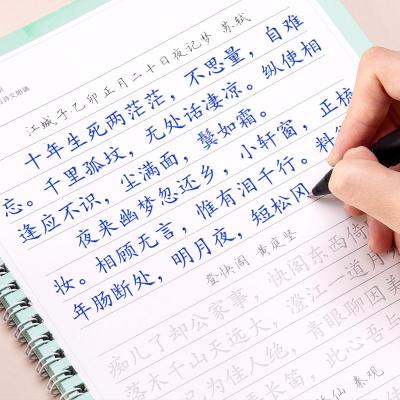 江城子·乙卯正月二十日夜记梦 苏轼
十年生死两茫茫，不思量，自难
忘。千里孤坟，无处话凄凉。纵使相
逢应不识，尘满面，鬓如霜。
夜来幽梦忽还乡，小轩窗，正梳
妆。相顾无言，惟有泪千行。料
年肠断处，明月夜，短松冈
登快阁 黄庭坚
痴儿了却公家事，快阁东西倚
落木千山天远大，澄江一道月
已为佳人绝，青眼聊因美
长笛，此心吾与
仙 秦观